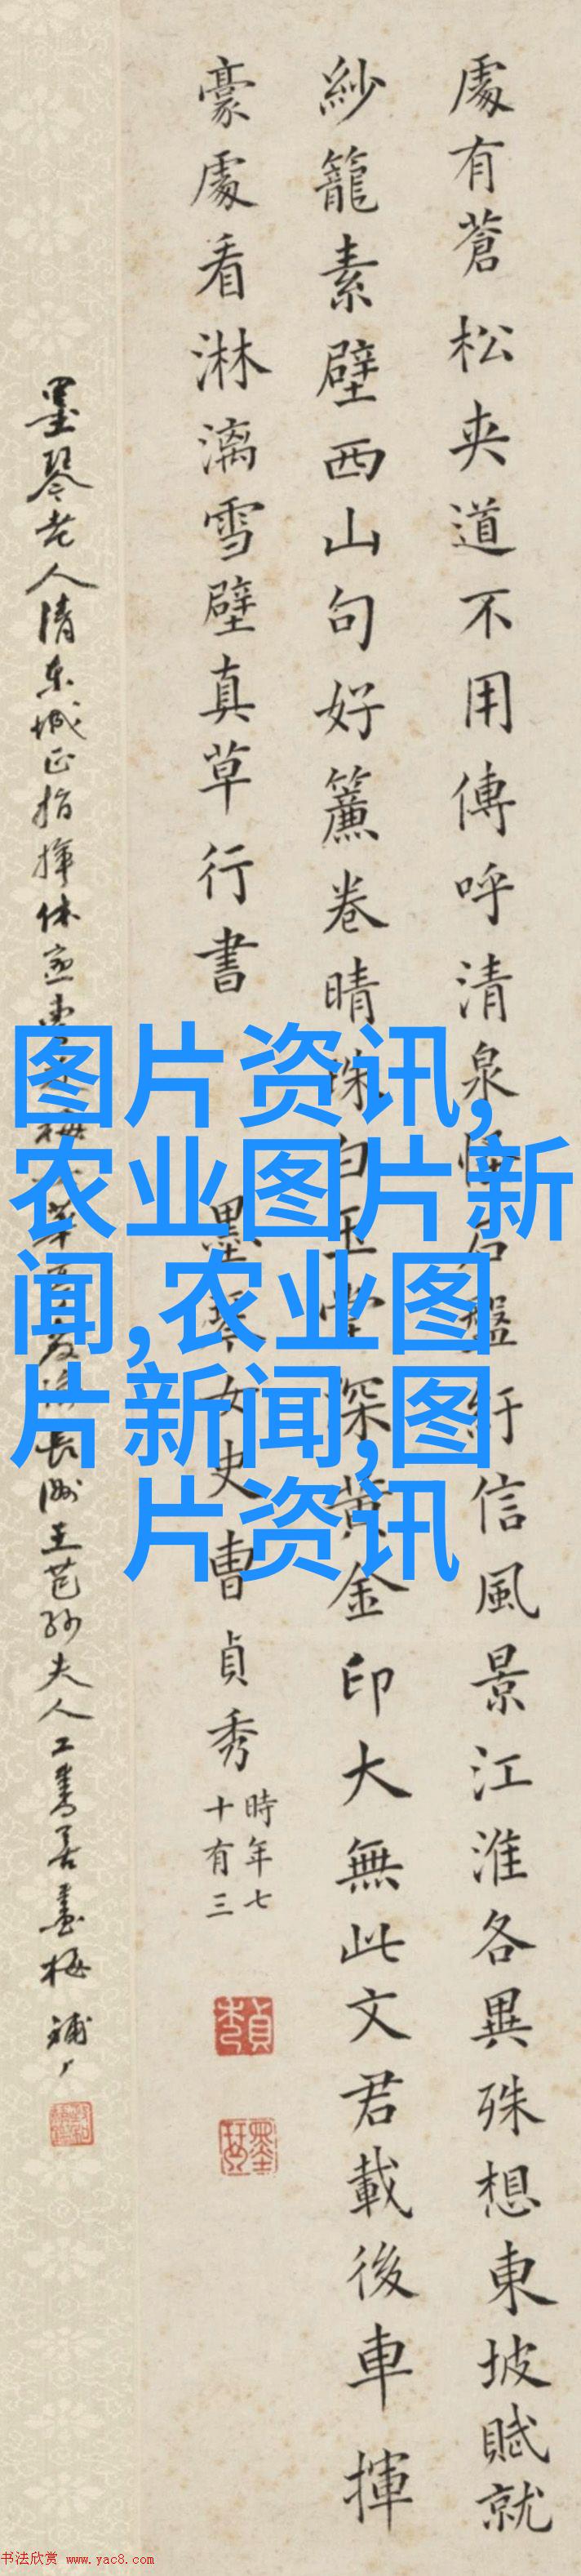 處有蒼松夾道不用傳呼清泉怪石盤紆信風景江淮各異殊想東坡賦就
紗籠素壁西山句好簾卷晴珠白玉堂深黃金印大無此文君載後車揮
豪處看淋漓雪壁真草行書
墨琴女史曹貞秀
時年七
十有三
墨琴老人清东城正指揮
長洲王芑孙夫人工書善畫梅
图片资讯,
农业图片新
闻,农业图
片新闻,图
片资讯
书法欣赏 www.yac8.com